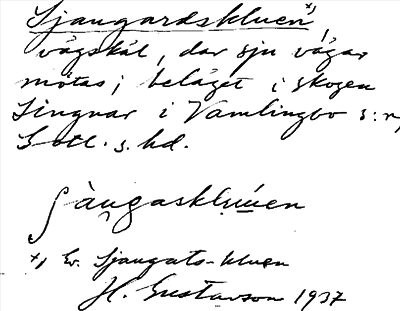 Sjaugardskluen x),
vägskäl, där sju vägar
mötas; beläget i skogen
Lingvar i Vamlingbo s:n,
Gotl. s. hd.
ʃàu̯gasklu̯ú̯en
x) Ev. Sjaugats-kluen
H. Gustavson 1937